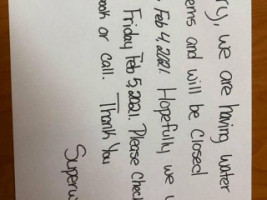 ry, we are having water
ems and will be closed
, Feb 4, 2021. Hopefully we w
Friday Feb 5, 2021. Please chec
ook or call. Thank You
Superw